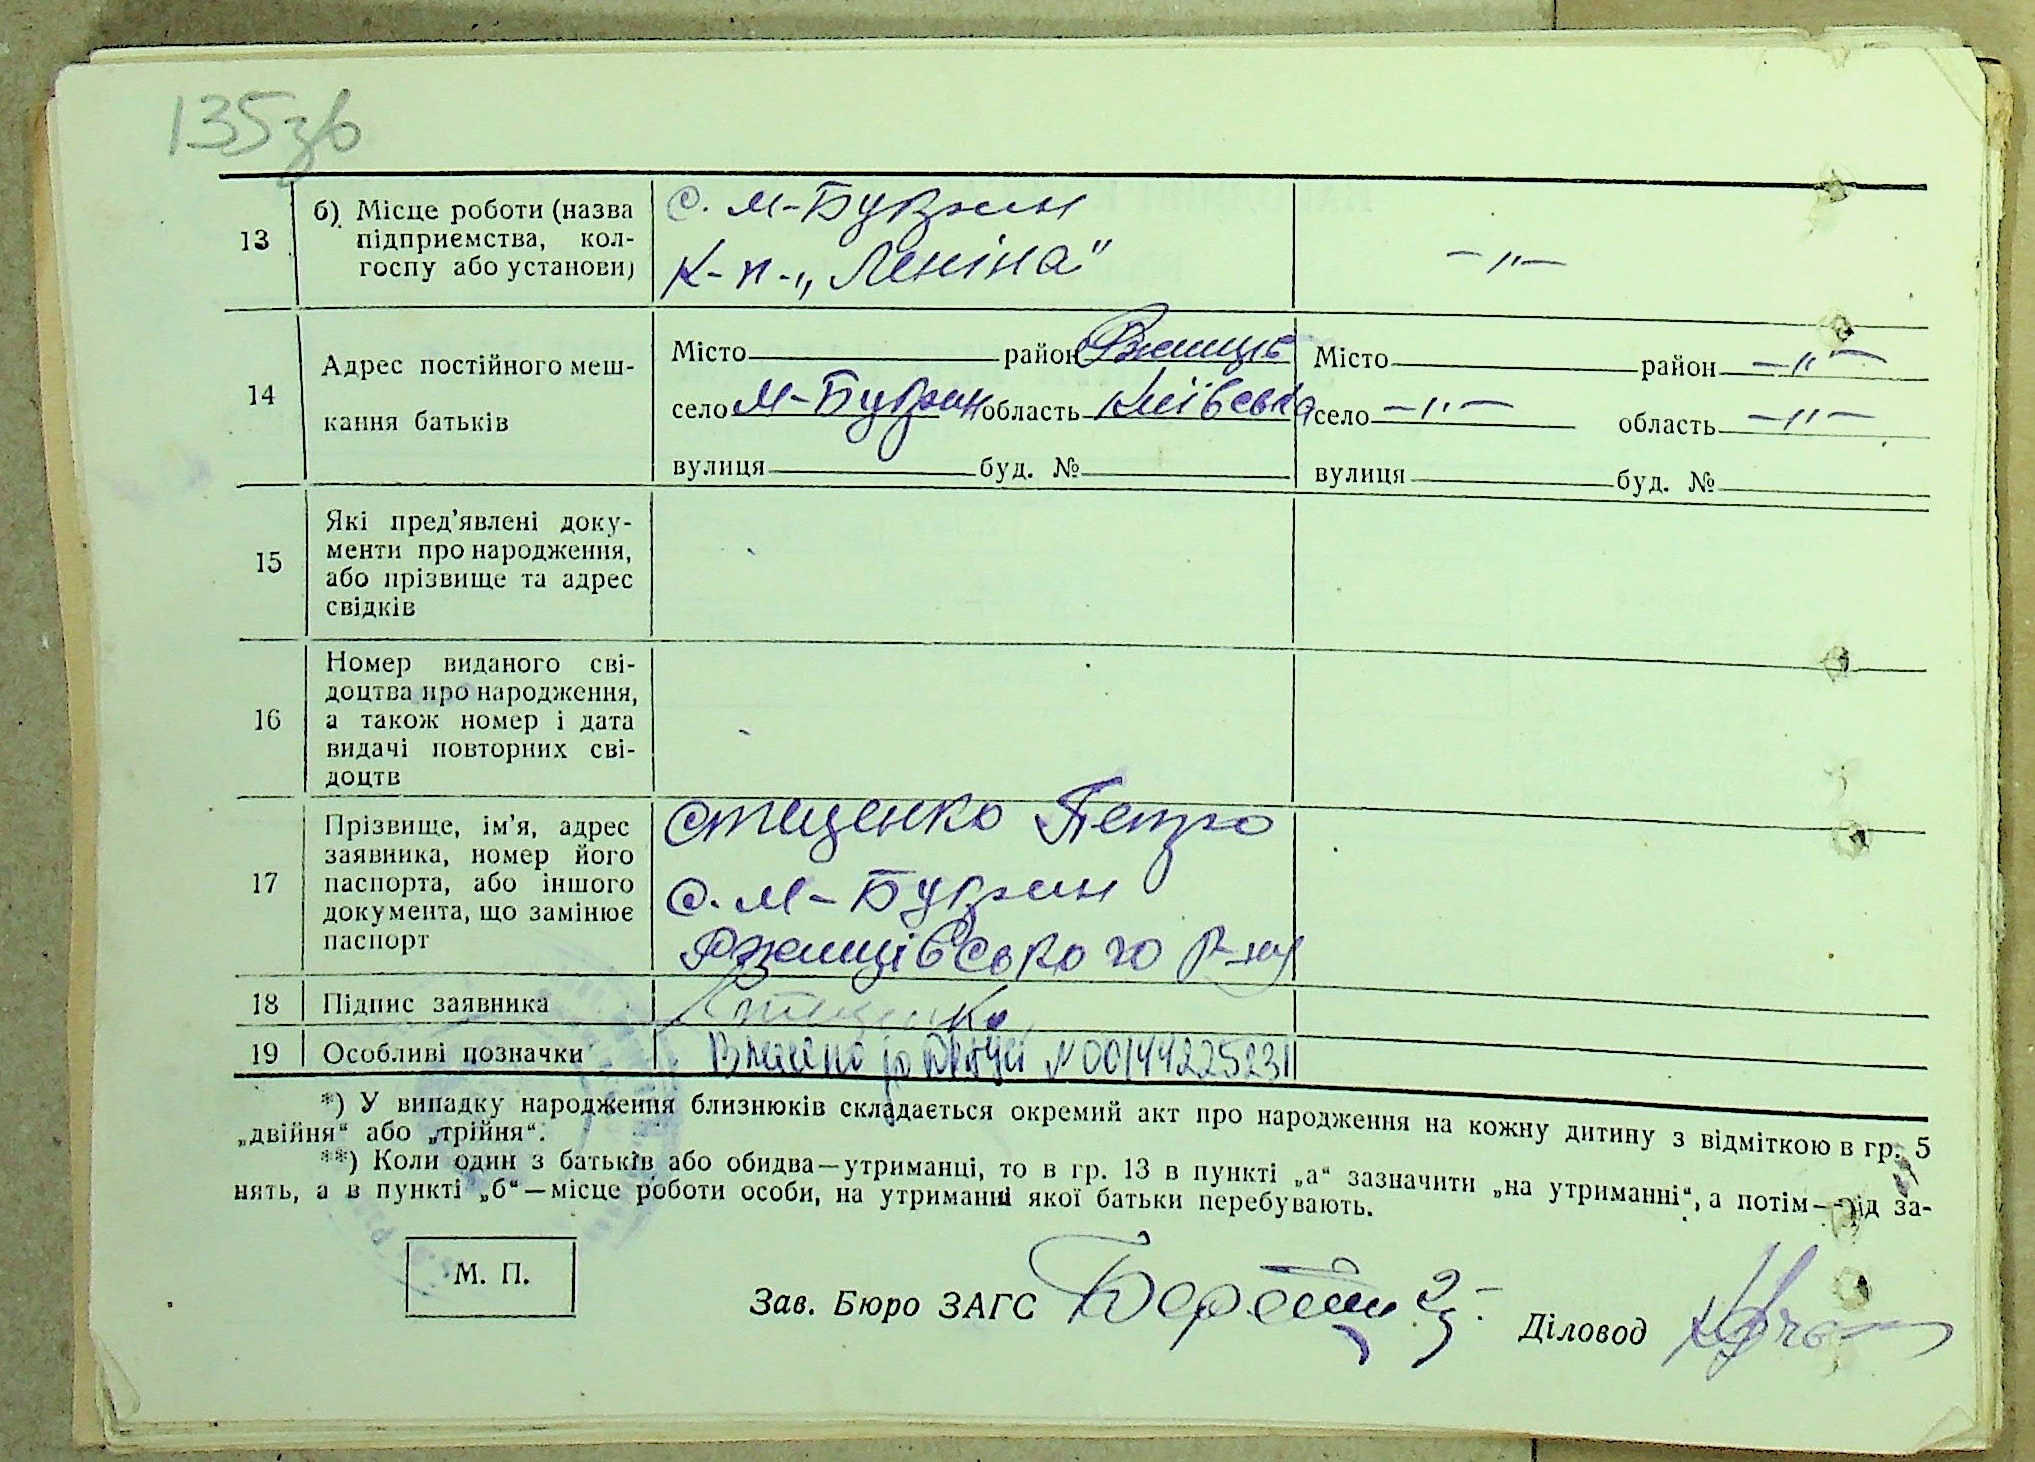 135зв
13
б) Місце роботи (назва
підприємства, кол-
госпу або установи)
с. М-Букрин
К-п-„Леніна"
-"-
14
Адрес постійного меш-
кання батьків
Місто район Ржищів
село М-Букрин область Київська
вулиця буд. №
Місто район -"-
село -"- область -"-
вулиця буд. №
15
Які пред'явлені доку-
менти про народження,
або прізвище та адрес
свідків
16
Номер виданого сві-
доцтва про народження,
а також номер і дата
видачі повторних сві-
доцтв
17
Прізвище, ім'я, адрес
заявника, номер його
паспорта, або іншого
документа, що замінює
паспорт
Стеценко Петро
с. М-Букрин
Ржищівського р-ну
18
Підпис заявника
Стеценко
19
Особливі позначки
Внесено до №00144225231
*) У випадку народження близнюків складається окремий акт про народження на кожну дитину з відміткою в гр. 5
„двійня“ або „трійня“.
**) Коли один з батьків або обидва—утриманці, то в гр. 13 в пункті „а“ зазначити „на утриманні“, а потім—рід за-
нять, а в пункті „б“—місце роботи особи, на утриманні якої батьки перебувають.
М. П.
Зав. Бюро ЗАГС
Діловод